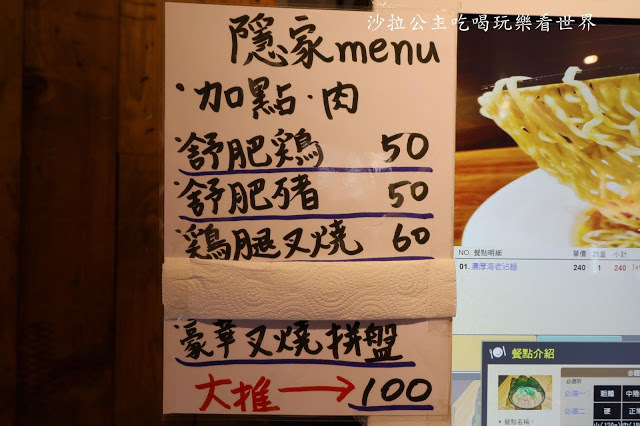 沙拉公主吃喝玩樂看世界
隱家menu
·加點·肉
舒肥鷄 50
舒肥豬 50
鷄腿叉燒 60
豪華叉燒拼盤
大推→100
NO. 餐點明細 單價 數量 小計
01. 濃厚海老沾麵 240 1 240
餐點介紹
粗麵
硬
餐點名稱